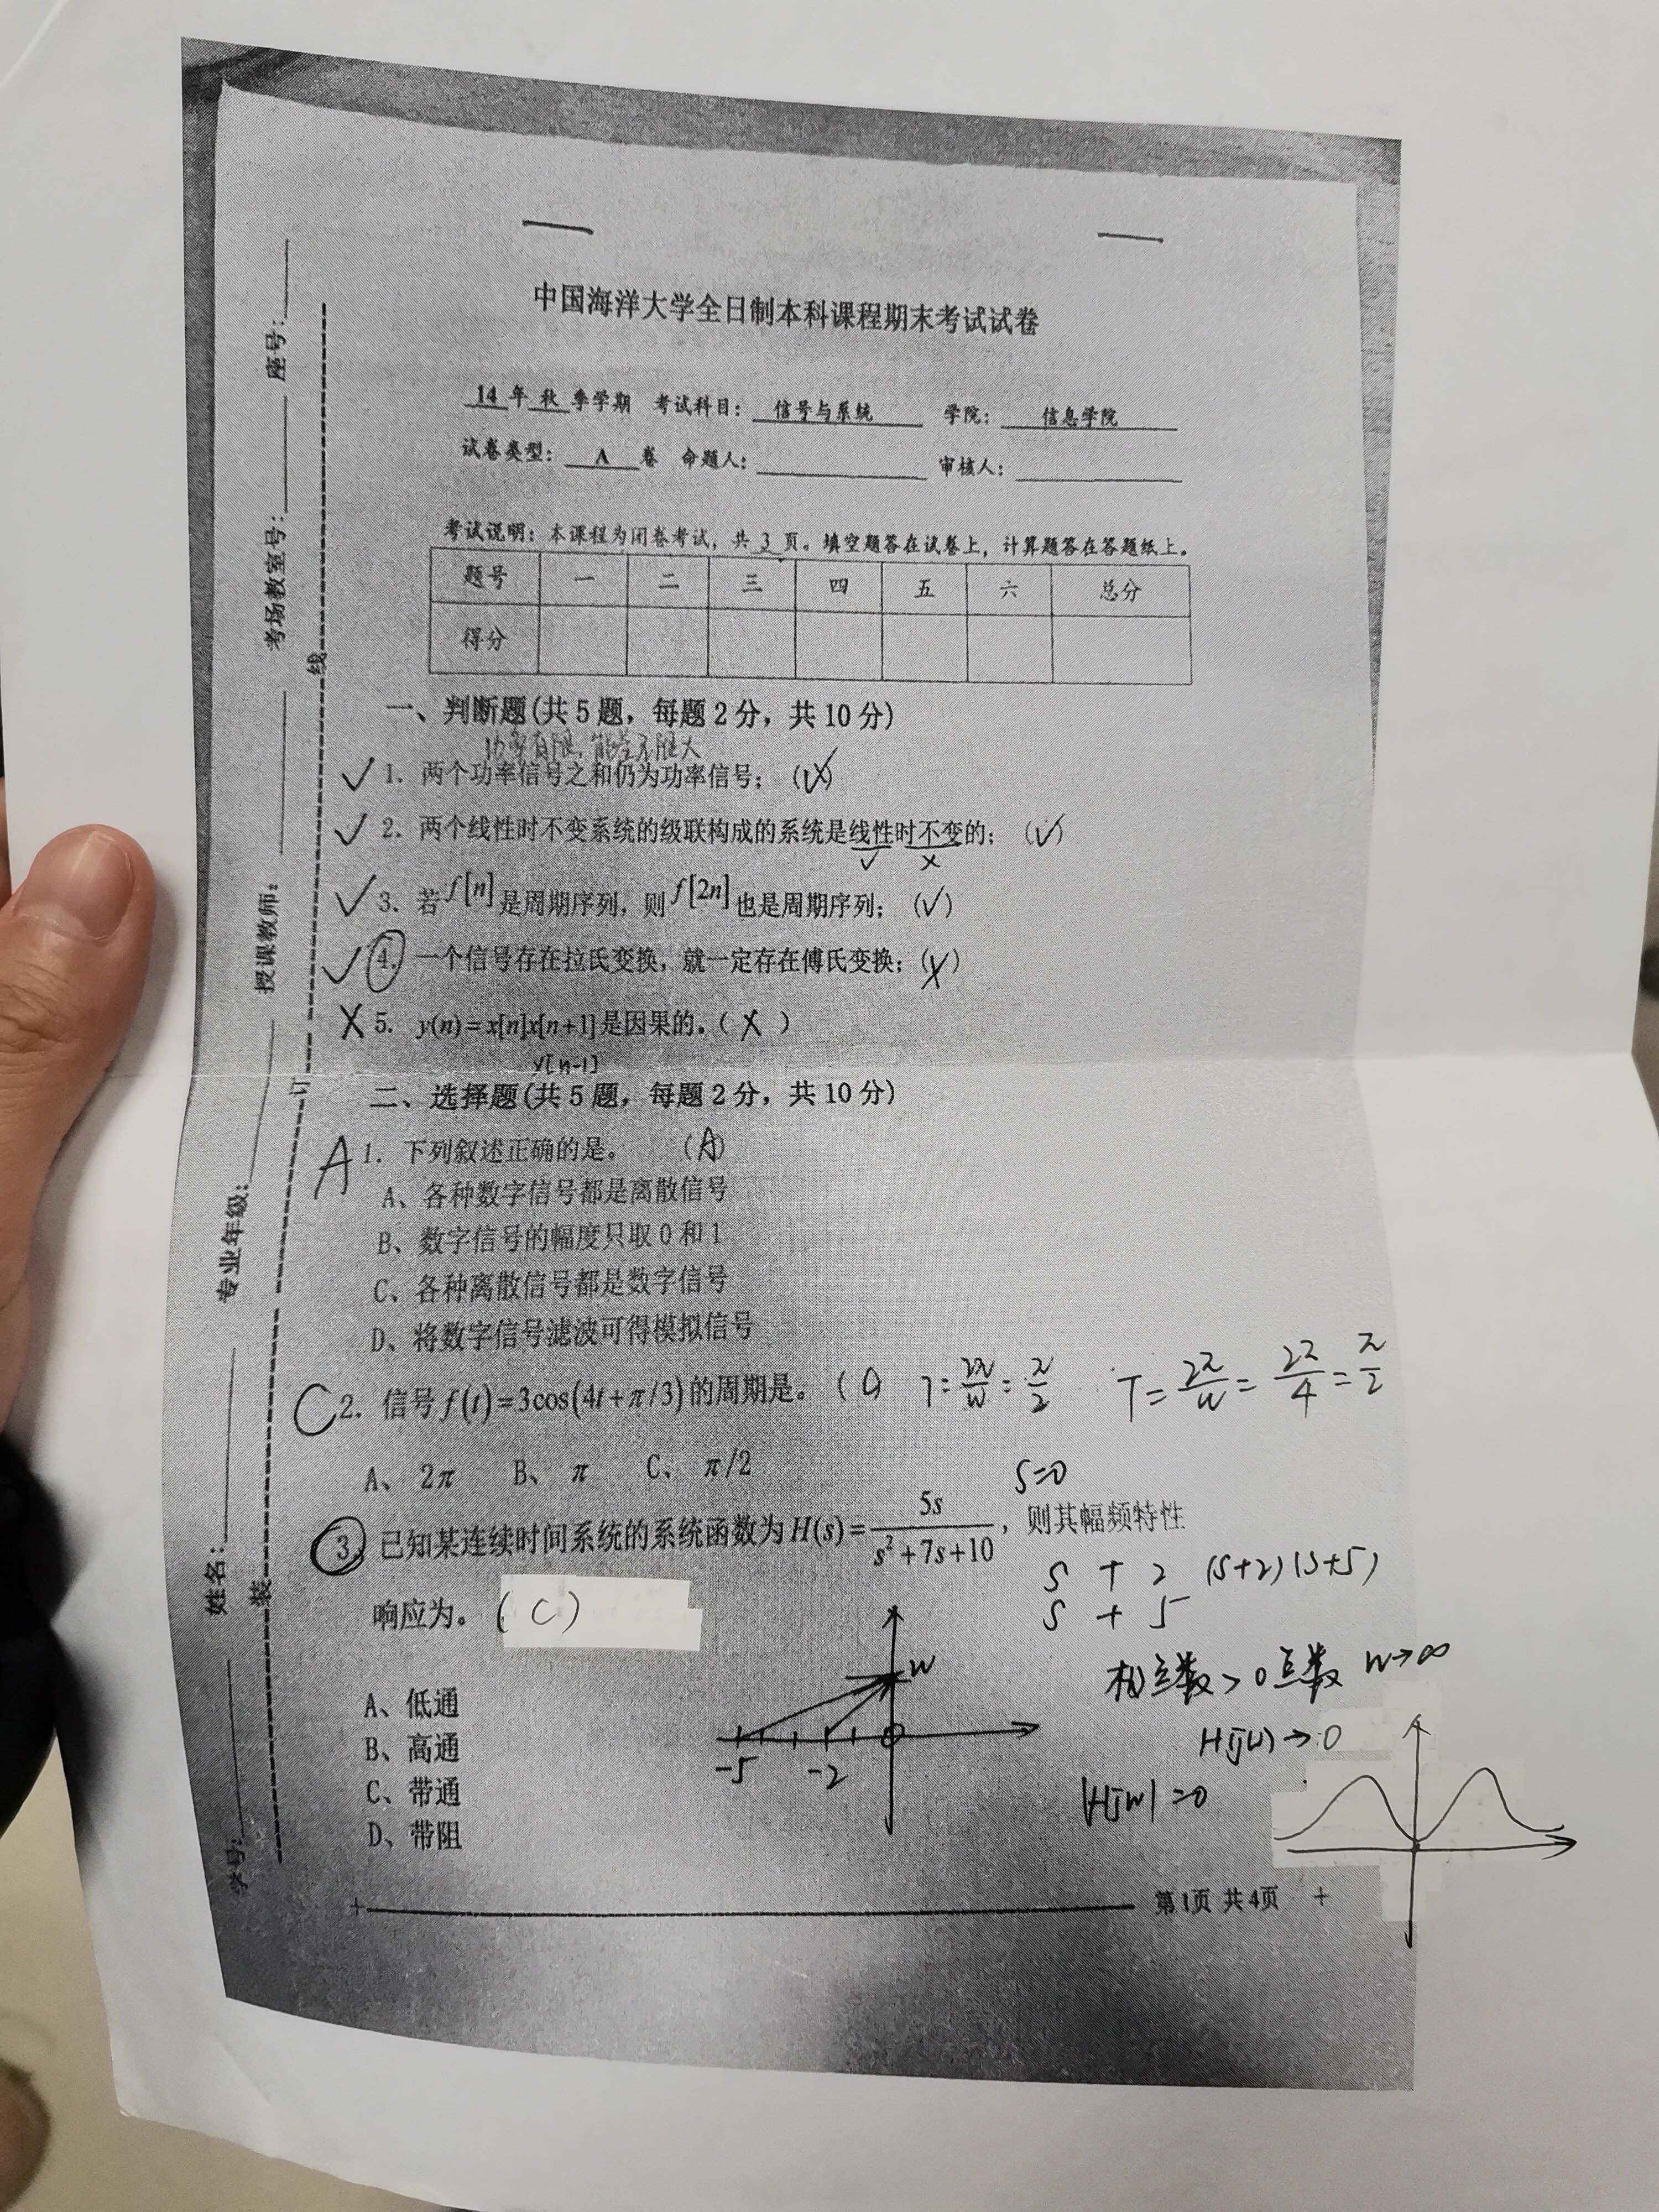 中国海洋大学全日制本科课程期末考试试卷
14 年 秋 季学期 考试科目: 信号与系统 学院: 信息学院
试卷类型: A 卷 命题人: 审核人:
考试说明: 本课程为闭卷考试, 共 3 页。填空题答在试卷上, 计算题答在答题纸上。
题号 一 二 三 四 五 六 总分
得分
一、判断题(共 5 题, 每题 2 分, 共 10 分)
功率有限, 能量无限大
✓ 1. 两个功率信号之和仍为功率信号; (✓)
✓ 2. 两个线性时不变系统的级联构成的系统是线性时不变的; (✓)
✓ x
✓ 3. 若 f[n] 是周期序列, 则 f[2n] 也是周期序列; (✓)
✓ 4. 一个信号存在拉氏变换, 就一定存在傅氏变换; (X)
X 5. y(n)=x[n]x[n+1]是因果的。( X )
x[n-1]
二、选择题(共 5 题, 每题 2 分, 共 10 分)
A 1. 下列叙述正确的是。 (A)
A、各种数字信号都是离散信号
B、数字信号的幅度只取 0 和 1
C、各种离散信号都是数字信号
D、将数字信号滤波可得模拟信号
C 2. 信号 f(t)=3cos(4t+π/3) 的周期是。(C) T=2π/w=π/2 T=2π/w=2π/4=π/2
A、 2π B、 π C、 π/2
s=0
3. 已知某连续时间系统的系统函数为 H(s)=5s/(s²+7s+10), 则其幅频特性
s + 2 (s+2)(s+5)
s + 5
响应为。(C)
w
极点数>0点数 w→∞
A、低通
B、高通
H(jw)→0
C、带通
-5 -2 0
|H(jw)|=0
D、带阻
第1页 共4页
座号:
考场教室号:
授课教师:
专业年级:
姓名:
学号:
线
订
装